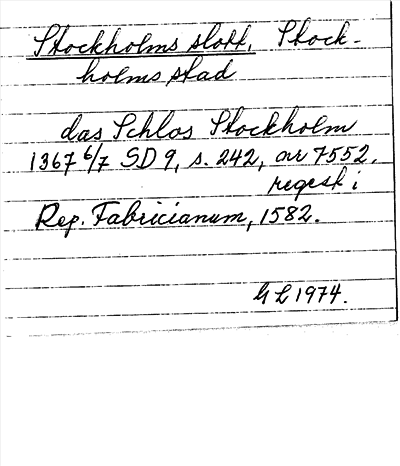 Stockholms slott, Stock-
holms stad
das Schlos Stockholm
1367 6/7 SD 9, s. 242, nr 7552.
regest i
Rep. Fabricianum, 1582.
G L 1974.